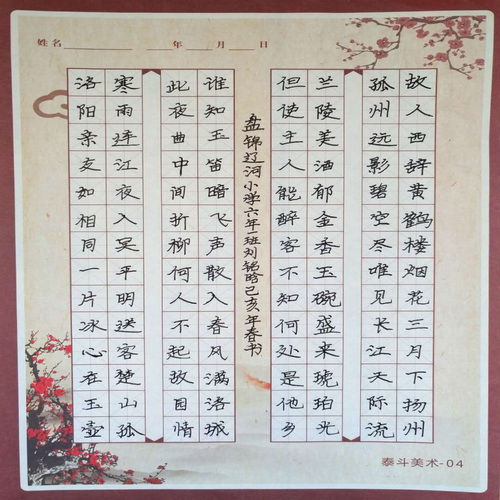 姓名 年 月 日
故人西辞黄鹤楼烟花三月下扬州
孤州远影碧空尽唯见长江天际流
兰陵美酒郁金香玉碗盛来琥珀光
但使主人能醉客不知何处是他乡
盘锦辽河小学六年一班刘铭晗己亥年春书
谁知玉笛暗飞声散入春风满洛城
此夜曲中间折柳何人不起故园情
寒雨连江夜入吴平明送客楚山孤
洛阳亲友如相同一片冰心在玉壶
泰斗美术-04